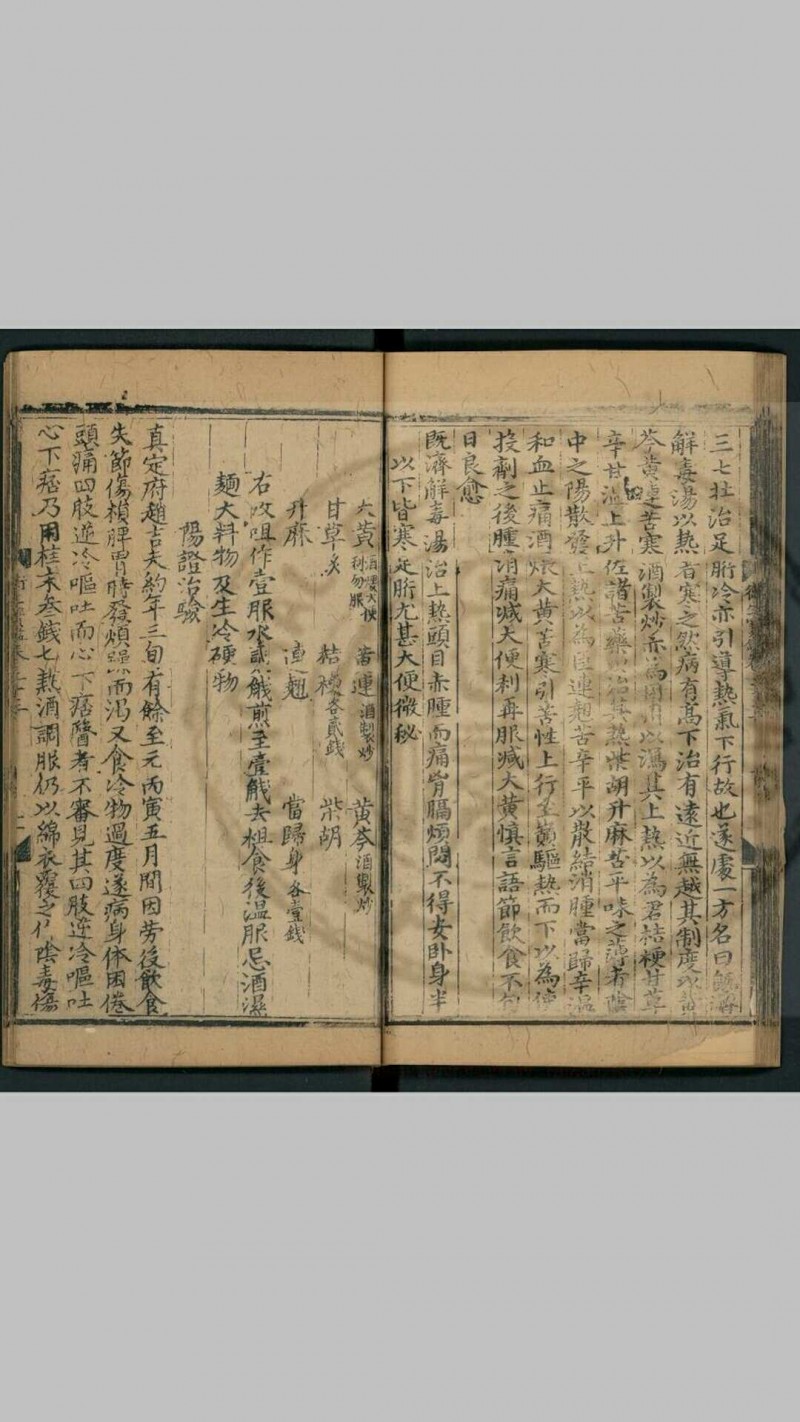 三七壮治足胻冷亦引導熱氣下行故也遂處一方名曰既濟
解毒湯以熱者寒之然病有高下治有遠近無越其制度以黃
芩黃連苦寒酒製炒亦為因用以瀉其上熱以為君桔梗甘草
辛甘溫上升佐諸苦藥以治其熱柴胡升麻苦平味之薄者陰
中之陽散發上熱以為臣連翹苦辛平以散結消腫當歸辛溫
和血止痛酒煨大黃苦寒引苦性上行至巔驅熱而下以為使
投劑之後腫消痛減大便利再服減大黃慎言語節飲食不旬
日良愈
既濟解毒湯治上熱頭目赤腫而痛胷膈煩悶不得安卧身半
以下皆寒足胻尤甚大便微秘
大黃酒煨大便利勿服 黃連酒製炒 黃芩酒製炒
甘草炙 桔梗各貳錢 柴胡
升麻 連翹 當歸身各壹錢
右㕮咀作壹服水貳觥煎至壹觥去柤食後溫服忌酒濕
麵大料物及生冷硬物
陽證治驗
真定府趙吉夫約年三旬有餘至元丙寅五月間因勞後飲食
失節傷損脾胃時發煩躁而渴又食冷物過度遂病身体困倦
頭痛四肢逆冷嘔吐而心下痞醫者不審見其四肢逆冷嘔吐
心下痞乃用桂末叁錢匕熱酒調服仍以綿衣覆之作陰毒傷